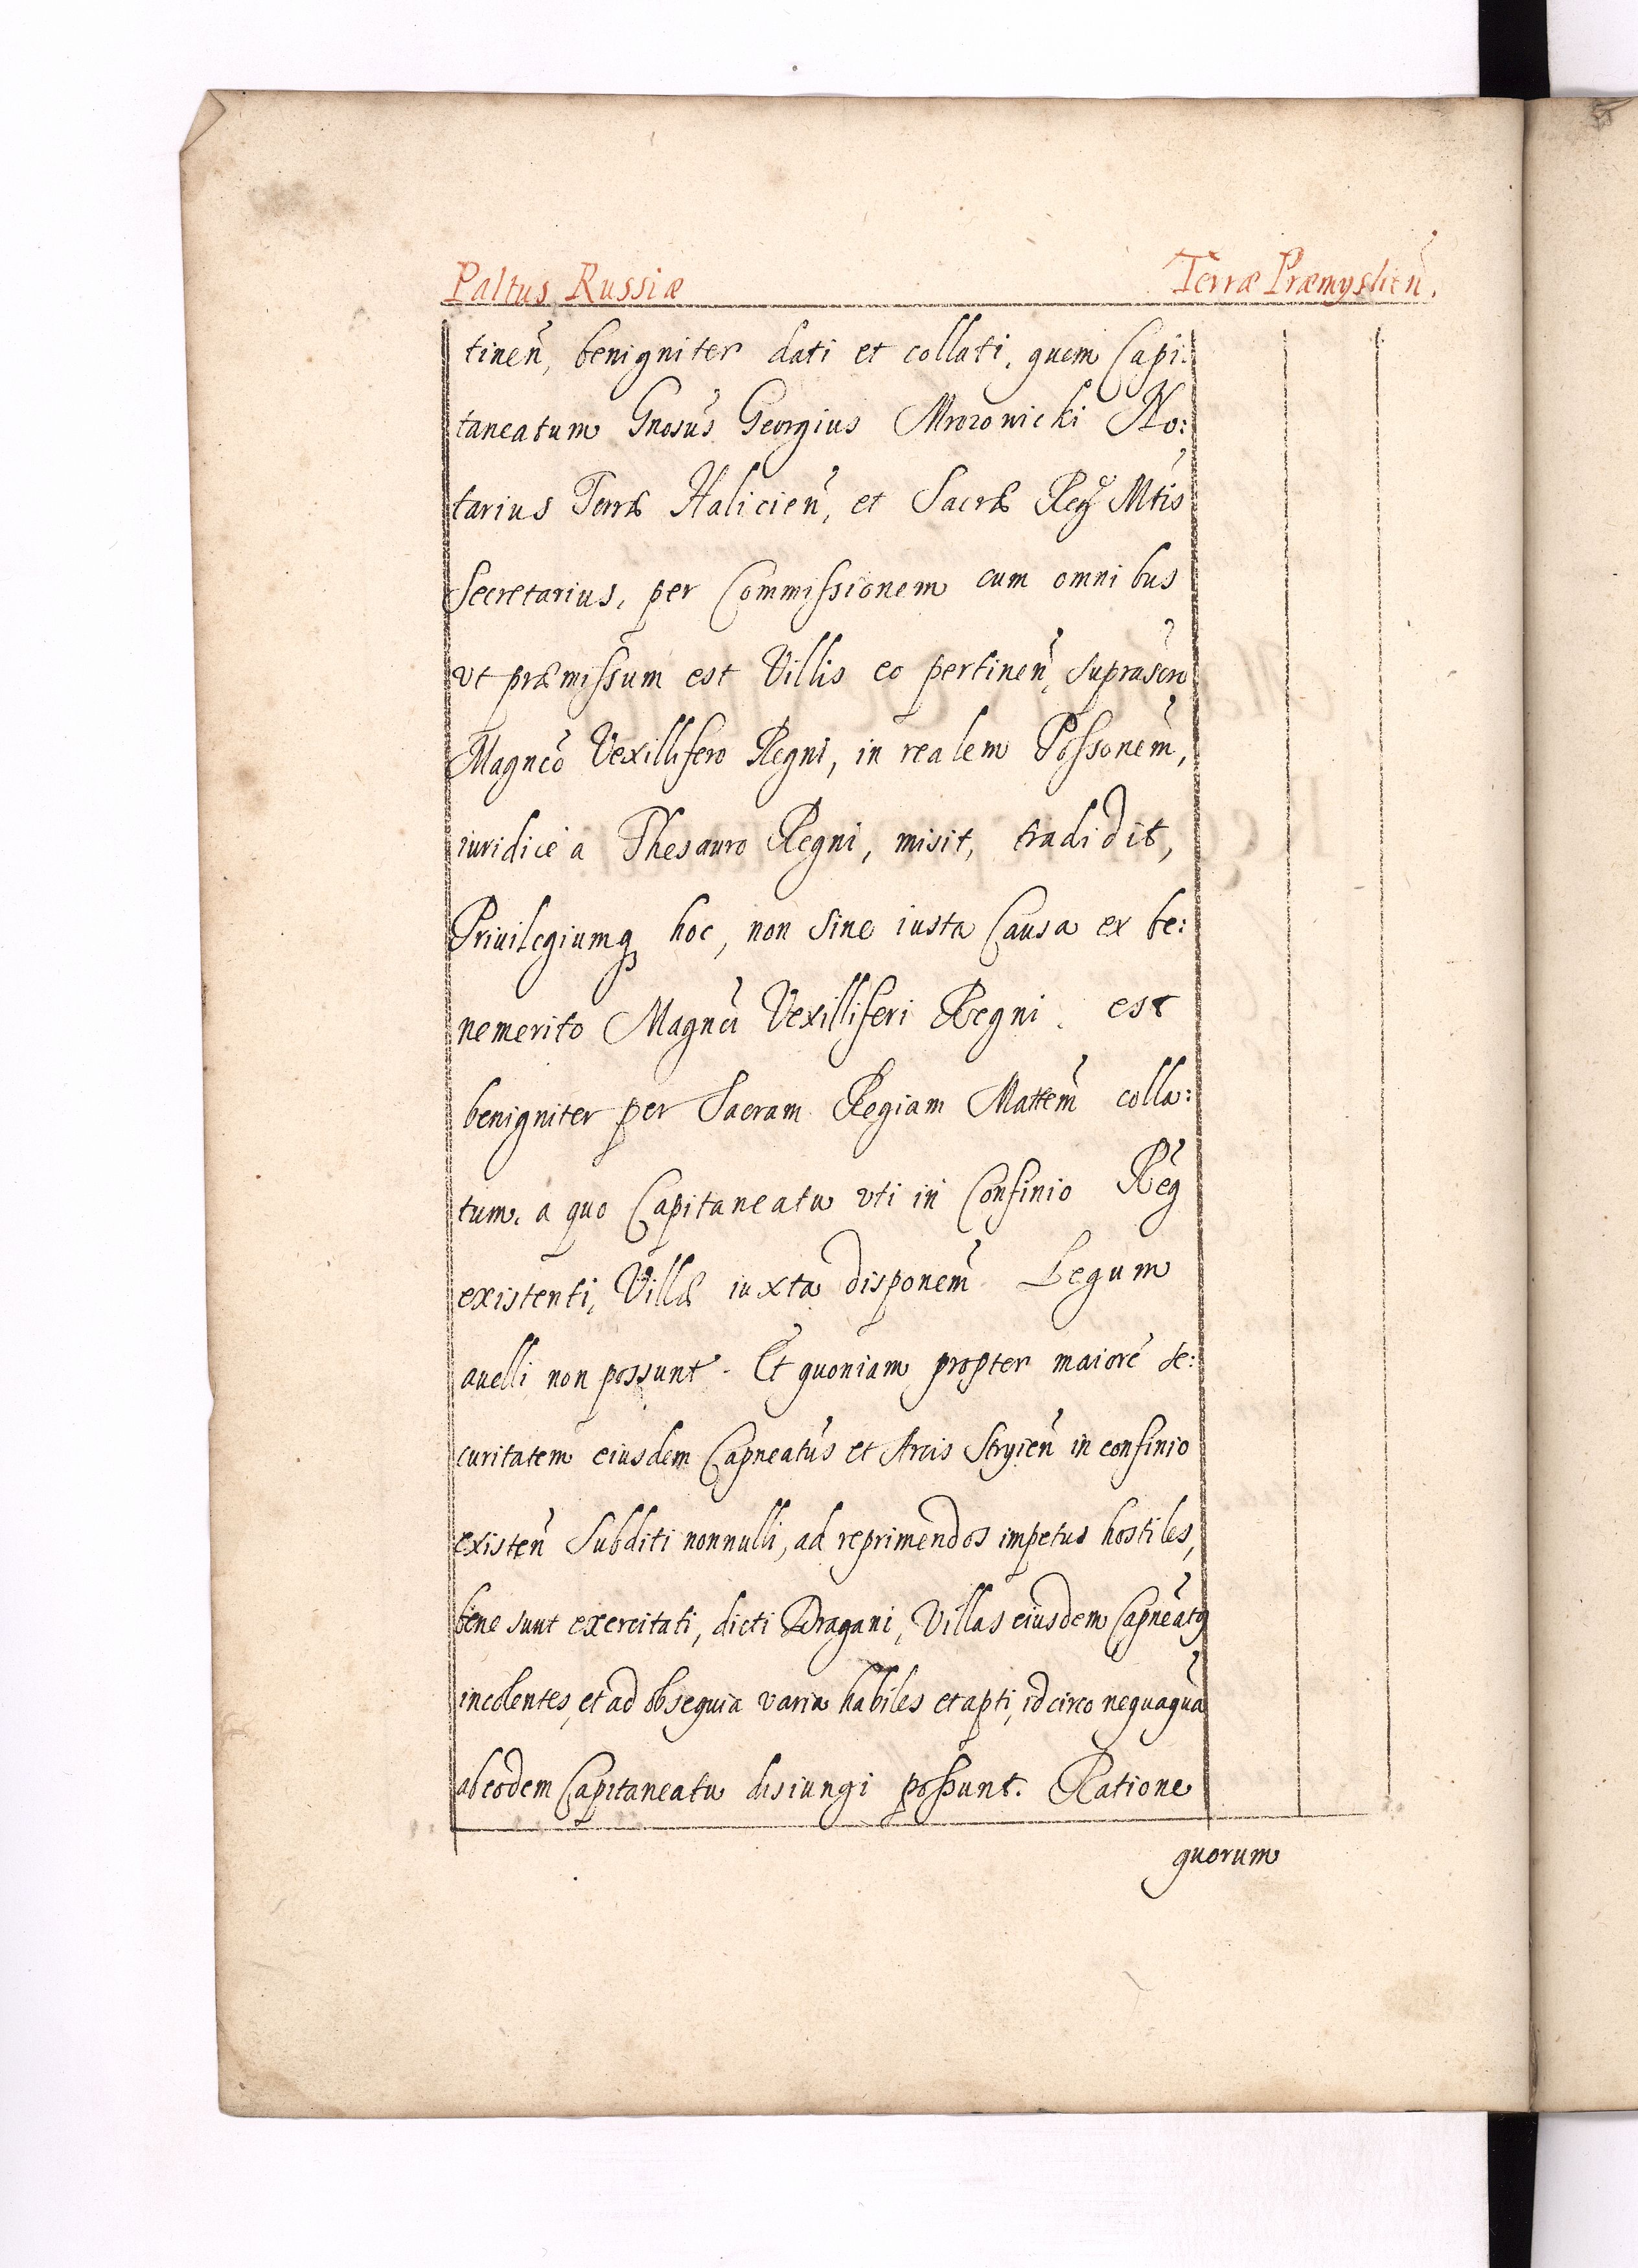 Paltus Russiæ Terræ Præmyslień.
tineń, benigniter dati et collati, quem Capi:
taneatum Gnosus Georgius Mrozowicki No:
tarius Terræ Halicień, et Sacræ Reg Mtis
Secretarius, per Commissionem cum omnibus
vt præmissum est Villis eo pertineń, suprascr
Magnco Vexillifero Regni, in realem Possonem,
iuridice a Thesauro Regni, misit, tradidit,
Priuilegiumq hoc, non sine iusta Causa ex be:
nemerito Magnci Vexilliferi Regni. est
benigniter per Sacram Regiam Mattem colla:
tum. a quo Capitaneatu vti in Confinio Reg
existenti, Villæ iuxta disponem Legum
auelli non possunt. Et quoniam propter maiore se:
curitatem eiusdem Capneatus et Arcis Stryień in confinio
existeń Subditi nonnulli, ad reprimendos impetus hostiles,
bene sunt exercitati, dicti Dragani, Villas eiusdem Capneatq
incolentes, et ad obsequia varia habiles et apti, idcirco nequaqua
ab eodem Capitaneatu disiungi possunt. Ratione
quorum